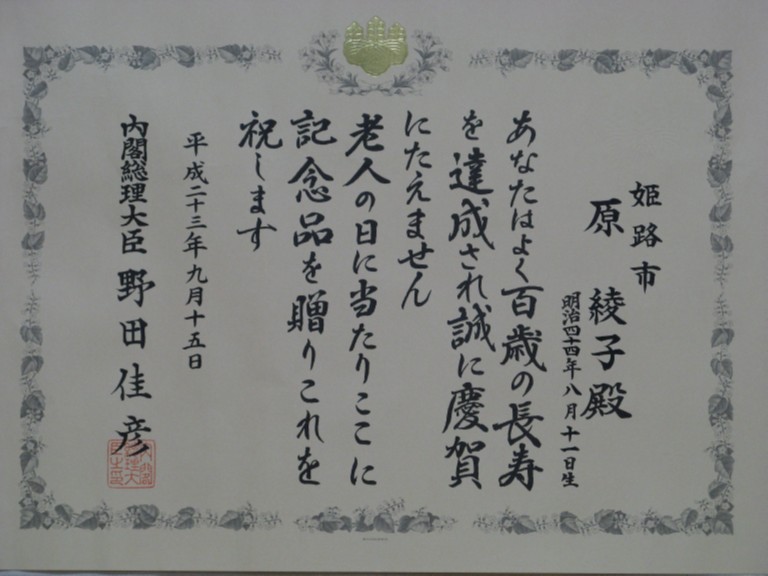 姫路市
原 綾子殿
明治四十四年八月十一日生
あなたはよく百歳の長寿
を達成され誠に慶賀
にたえません
老人の日に当たりここに
記念品を贈りこれを
祝します
平成二十三年九月十五日
内閣総理大臣 野田佳彦